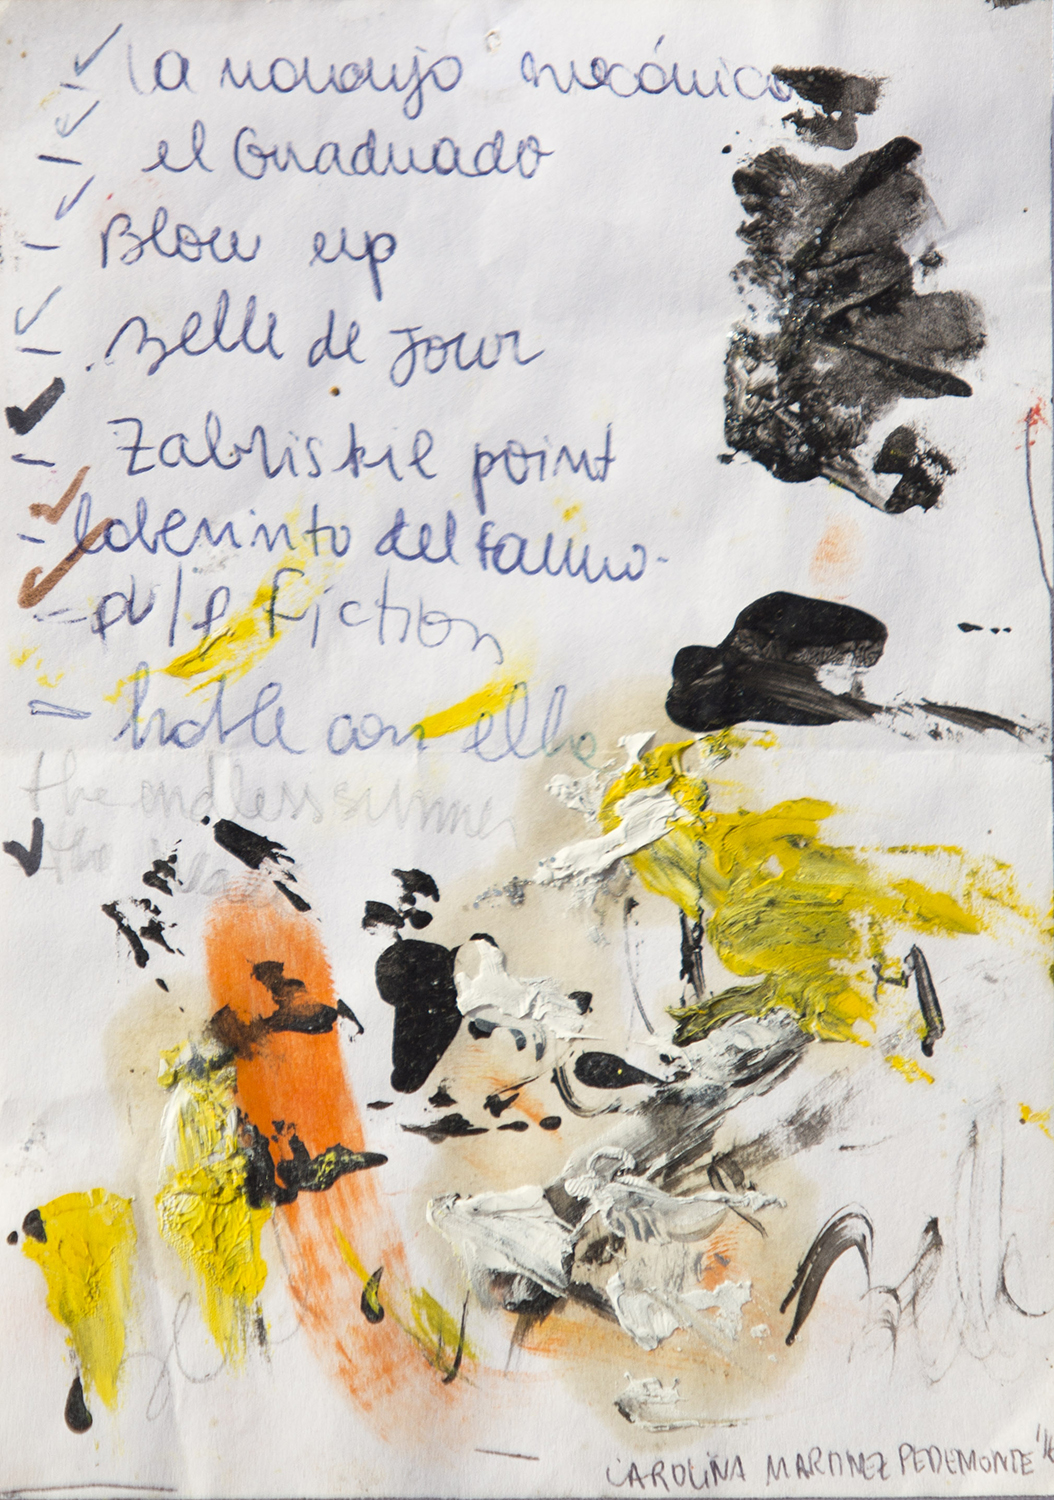 la naranja mecánica
el Graduado
Blow up
Belle de Jour
Zabriskie point
laberinto del fauno.
pulp fiction
hable con ella
the endless summer
the
Belle
CAROLINA MARTINEZ PEDEMONTE '16